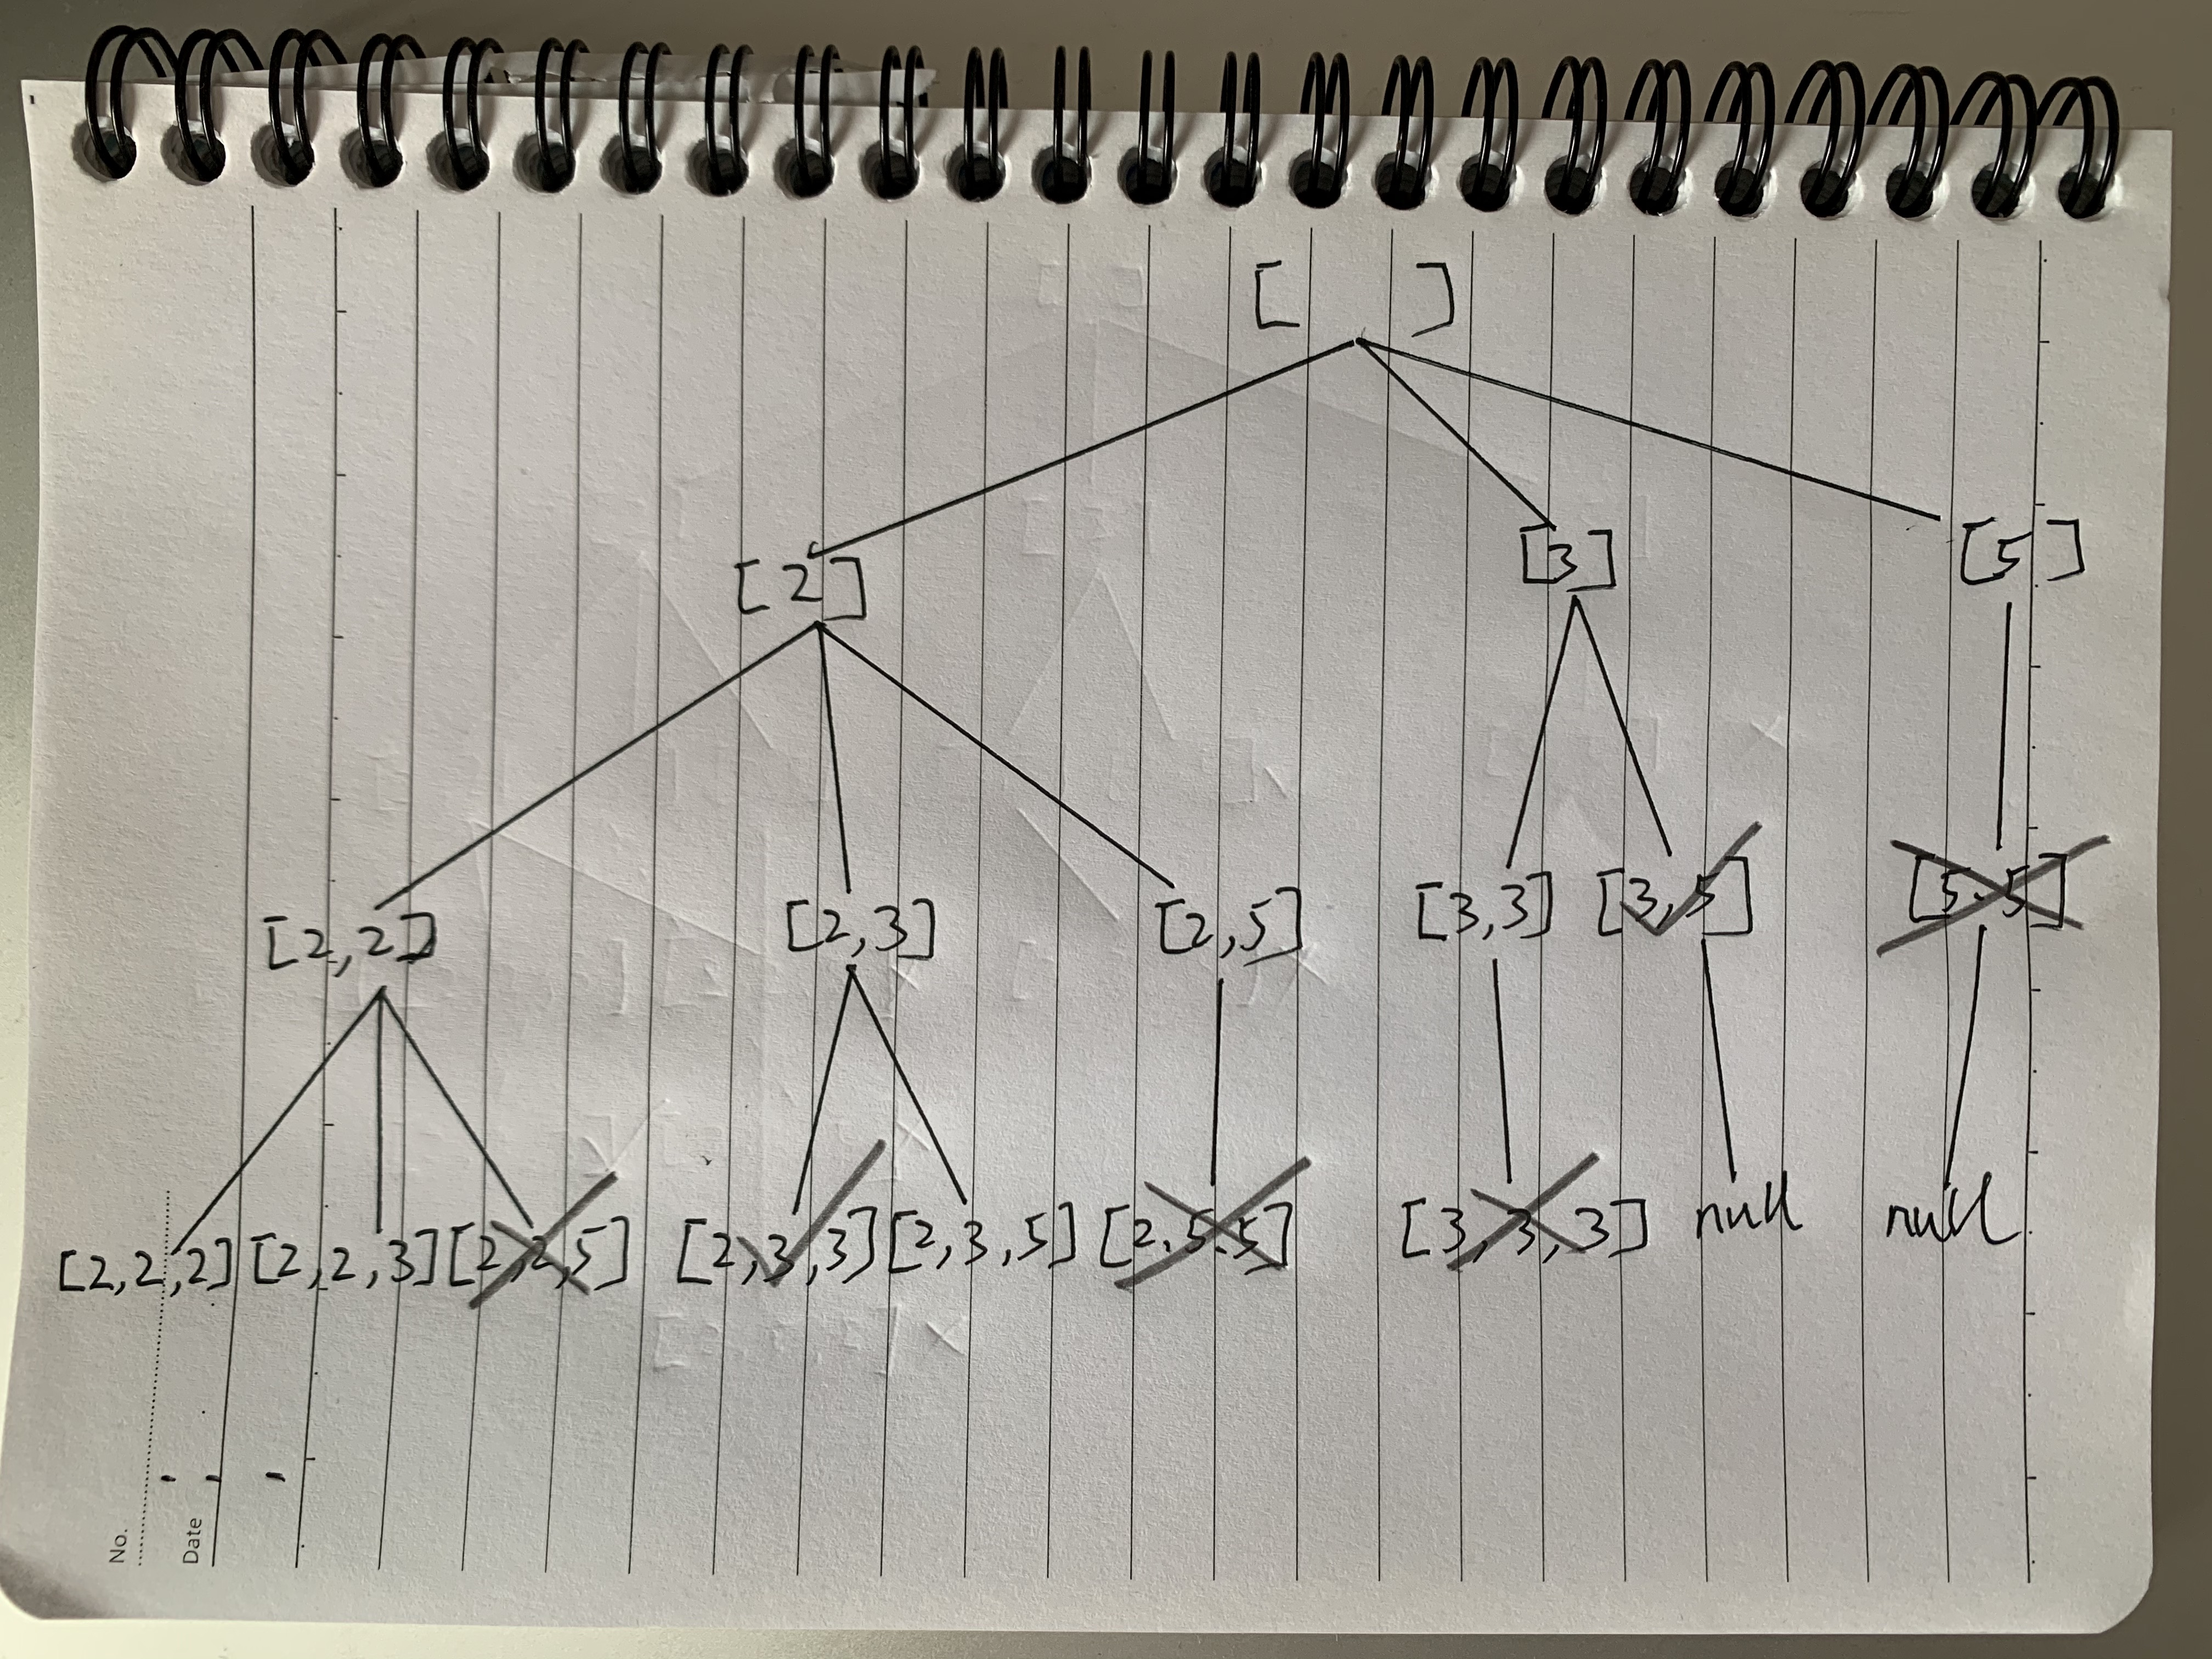 [ ]
[2] [3] [5]
[2,2] [2,3] [2,5] [3,3] [3,5] [5,5]
[2,2,2] [2,2,3] [2,2,5] [2,3,3] [2,3,5] [2,5,5] [3,3,3] null null
No.
Date